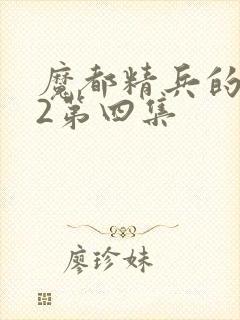 魔都精兵的
2第四集
廖珍妹